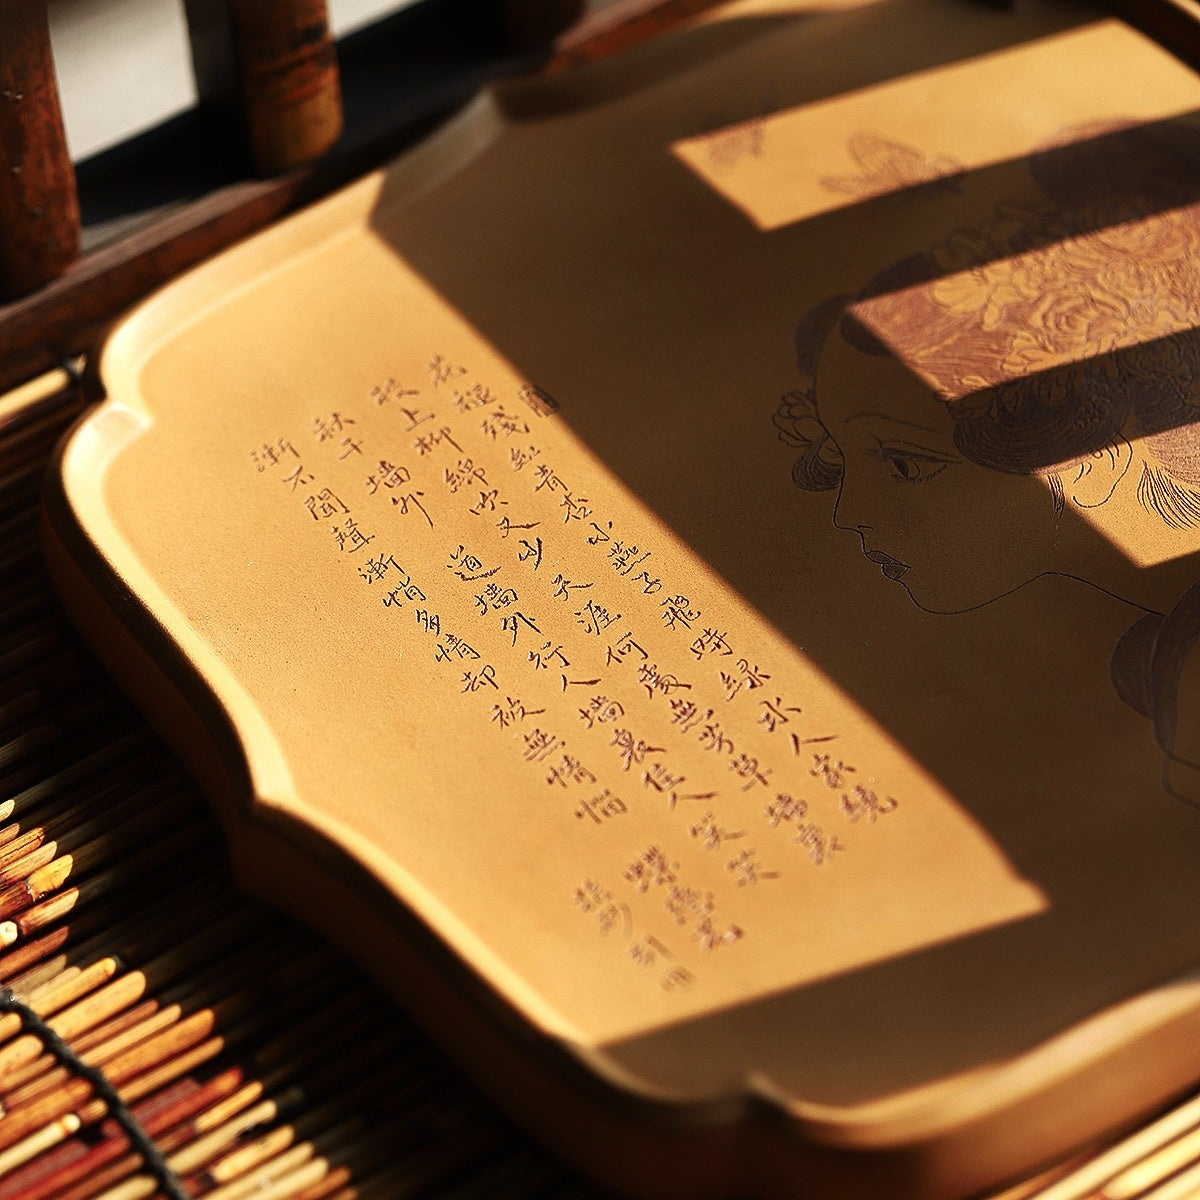 花褪殘紅青杏小燕子飛時綠水人家繞
枝上柳綿吹又少天涯何處無芳草墙裏
秋千墙外道墙外行人墙裏佳人笑笑
漸不聞聲漸悄多情却被無情惱
蝶戀花